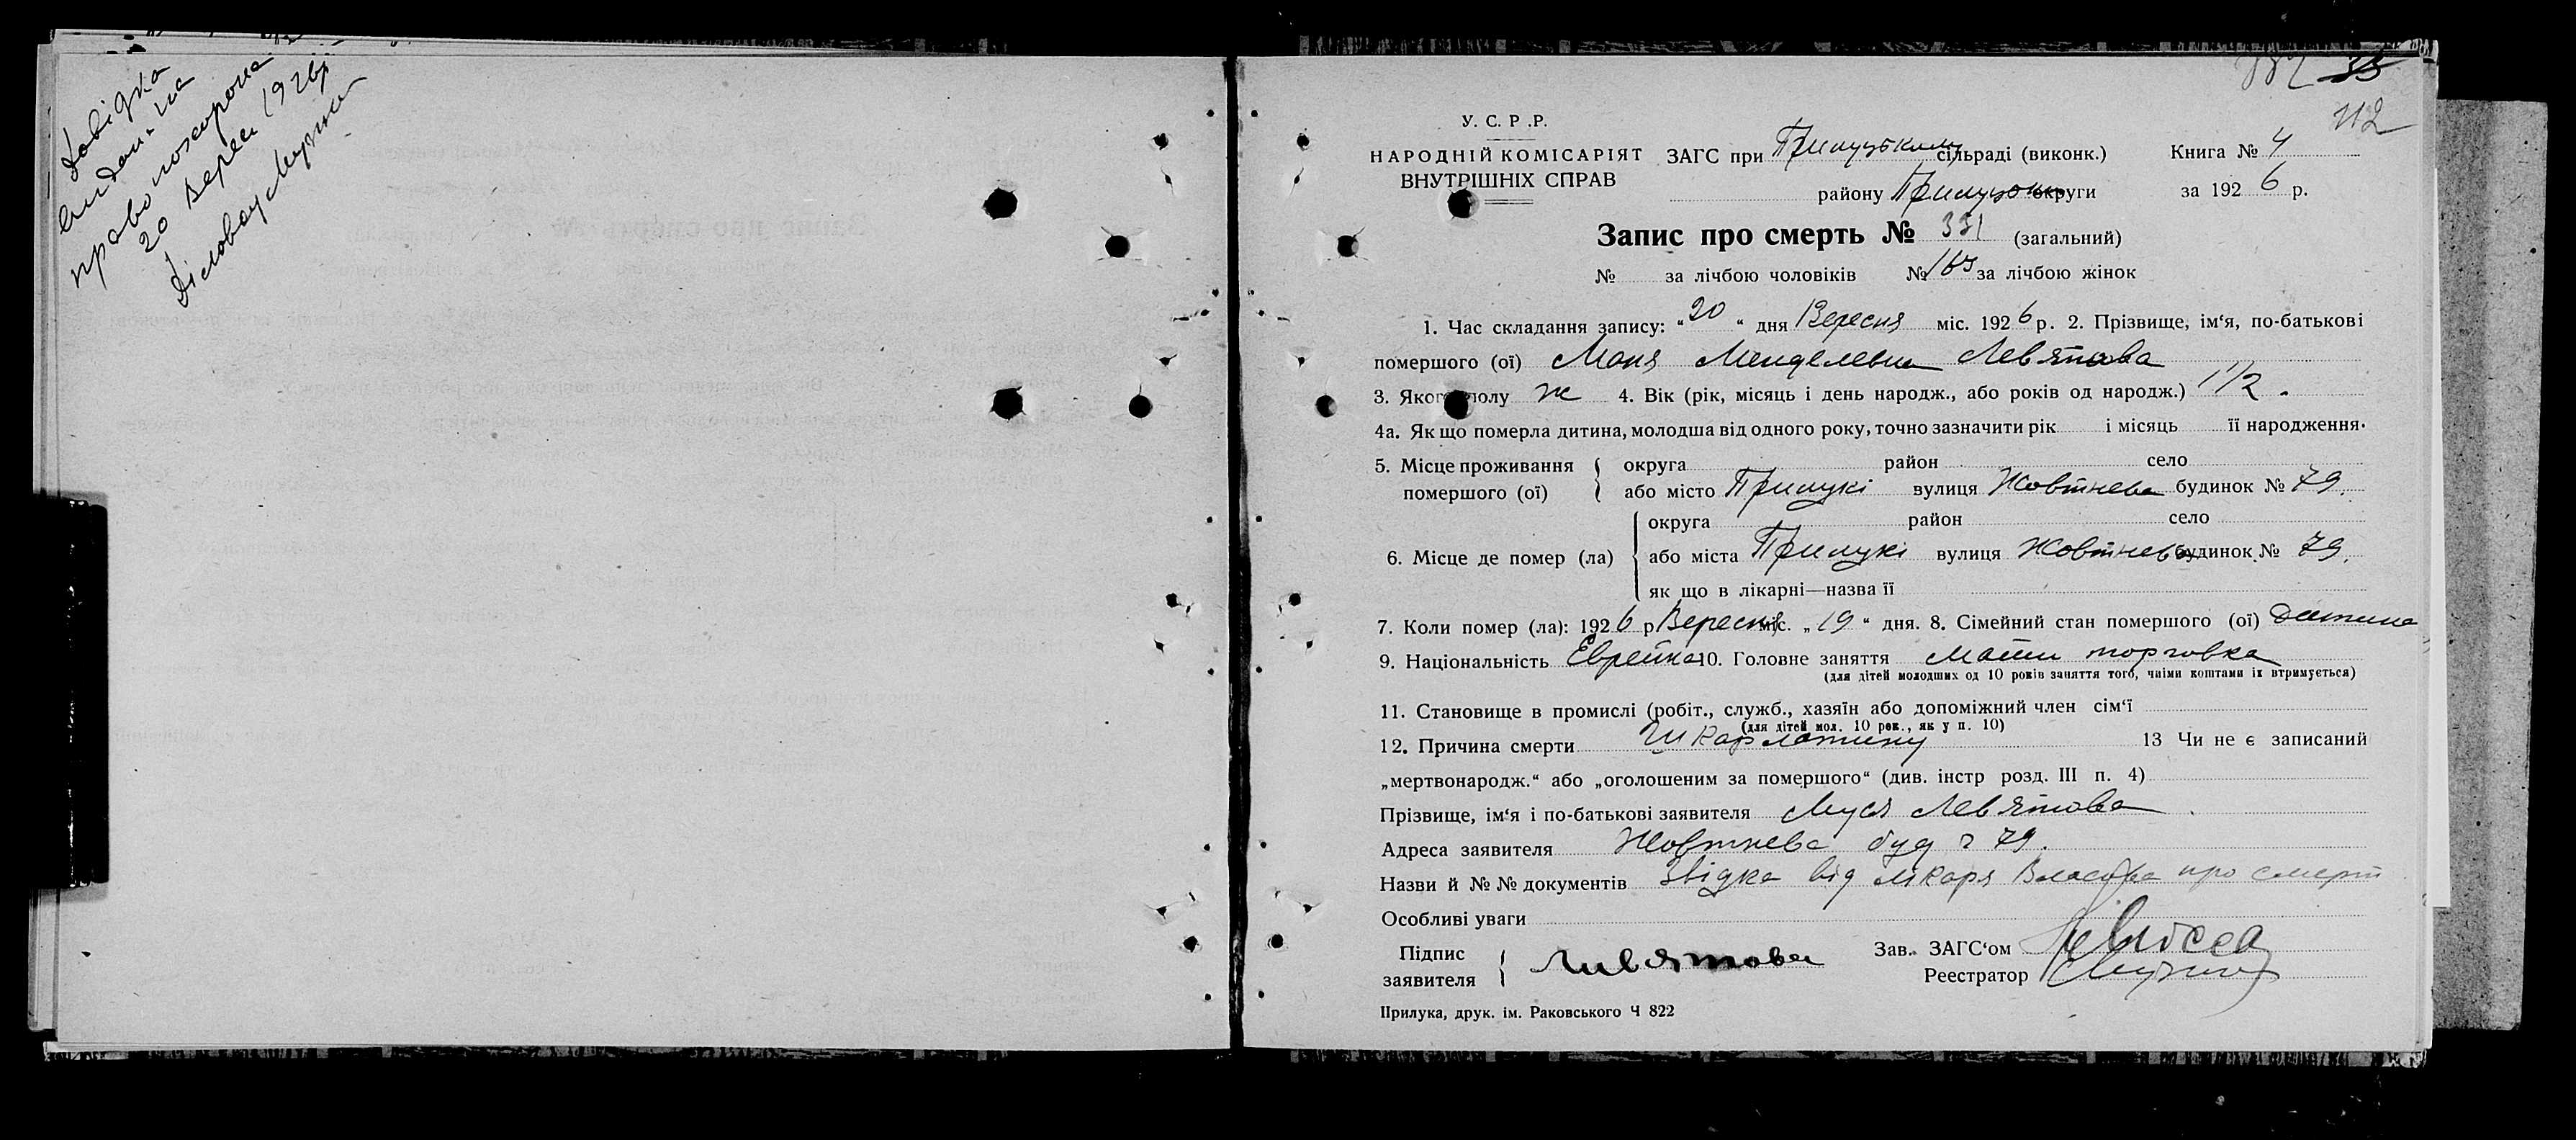 Довідка
видана на
право похорона
20 Верес 1926 р
Діловод
112
У. С. Р. Р.
НАРОДНІЙ КОМІСАРІЯТ
ВНУТРІШНІХ СПРАВ
ЗАГС при Прилуцькому сільраді (виконк.) Книга № 4
району Прилуцької округи за 1926 р.
Запис про смерть № 331 (загальний)
№ за лічбою чоловіків № за лічбою жінок
1. Час складання запису: “20“ дня Вересня міс. 1926 р. 2. Прізвище, ім‘я, по-батькові
помершого (ої) Маня Менделевна Лев'ятова
3. Якого полу ж 4. Вік (рік, місяць і день народж., або років од народж.) 1 1/2.
4а. Як що померла дитина, молодша від одного року, точно зазначити рік і місяць її народження.
5. Місце проживання помершого (ої) { округа район село
або місто Прилукі вулиця Жовтнева будинок № 79.
6. Місце де помер (ла) { округа район село
або міста Прилукі вулиця Жовтнева будинок № 79.
як що в лікарні—назва її
7. Коли помер (ла): 1926 р Вересня міс. „19“ дня. 8. Сімейний стан помершого (ої) Дитина
9. Національність Еврейка 10. Головне заняття мати торговка
(для дітей молодших од 10 років заняття того, чиїми коштами їх втримується)
11. Становище в промислі (робіт., служб., хазяїн або допоміжний член сім‘ї
(для дітей мол. 10 рок., як у п. 10)
12. Причина смерти Шкарлатину 13 Чи не є записаний
„мертвонародж.“ або „оголошеним за помершого“ (див. інстр розд. III п. 4)
Прізвище, ім‘я і по-батькові заявителя Муся Лев'ятова
Адреса заявителя Жовтнева буд ч 79.
Назви й № № документів Звідка від лікаря Власова про смерт
Особливі уваги
Підпис заявителя { Лив'ятова
Зав. ЗАГС‘ом
Реестратор
Прилука, друк. ім. Раковського Ч 822